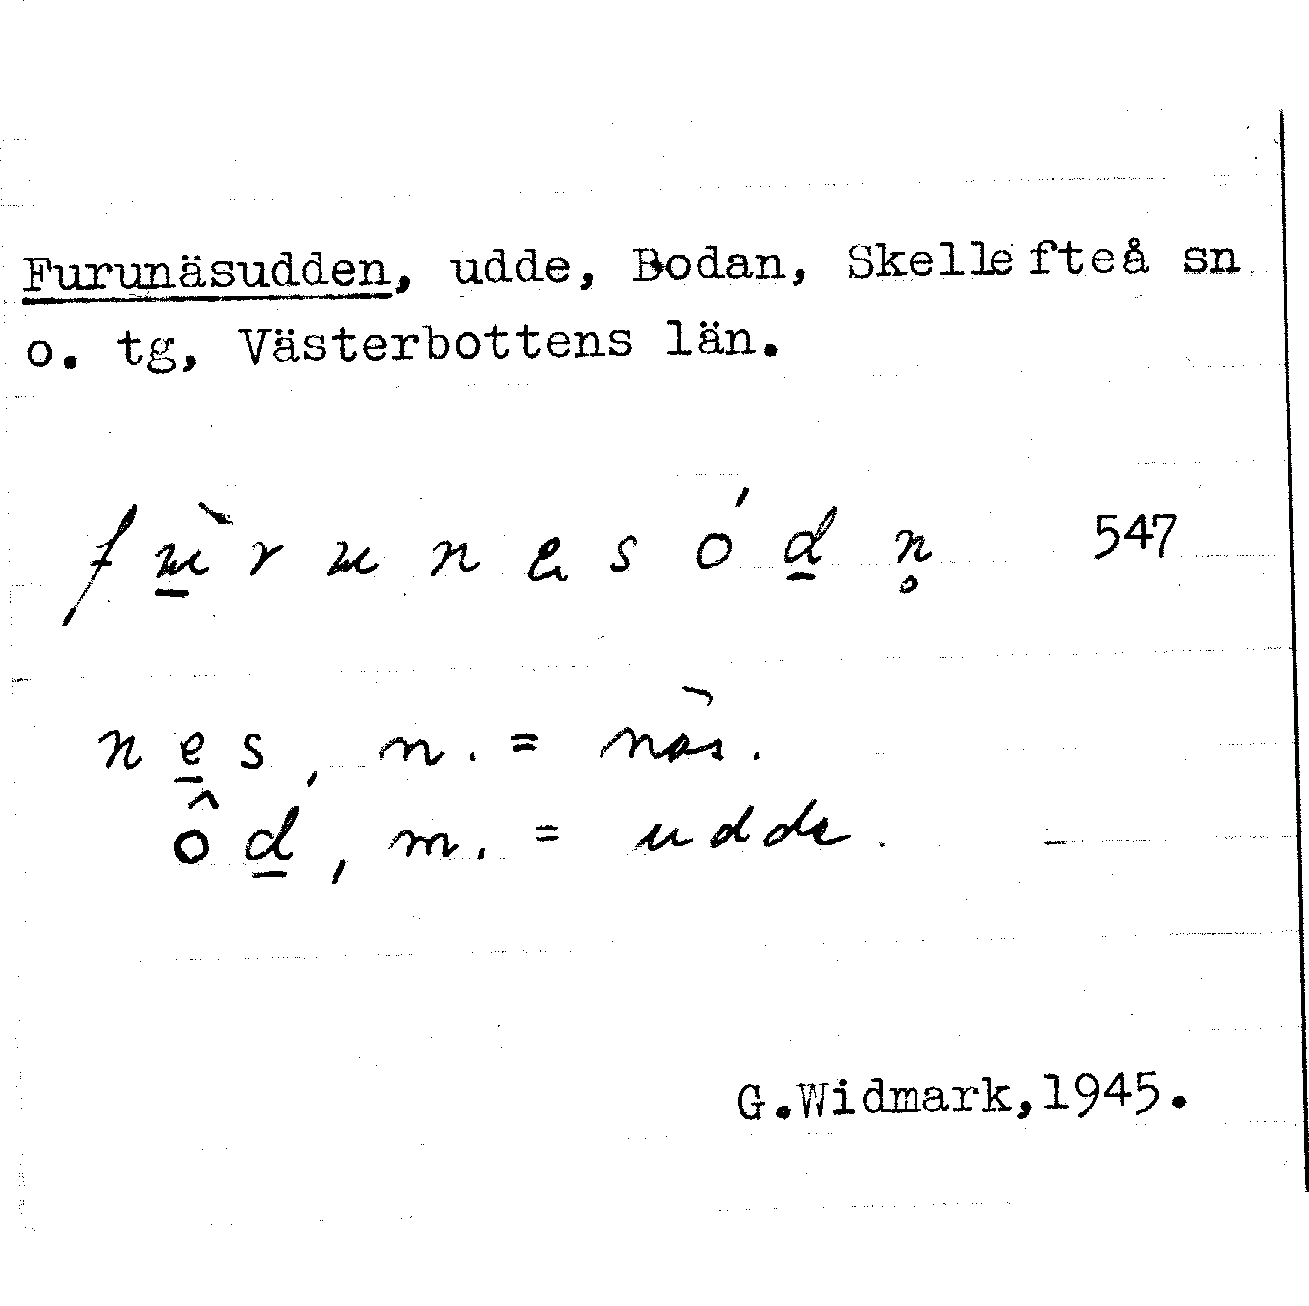 Furunäsudden, udde, Bodan, Skellefteå sn
o. tg, Västerbottens län.
fù̲runesód̲n̥ 547
ne̲s, n. = näs.
ôd̲, m. = udde.
G.Widmark,1945.